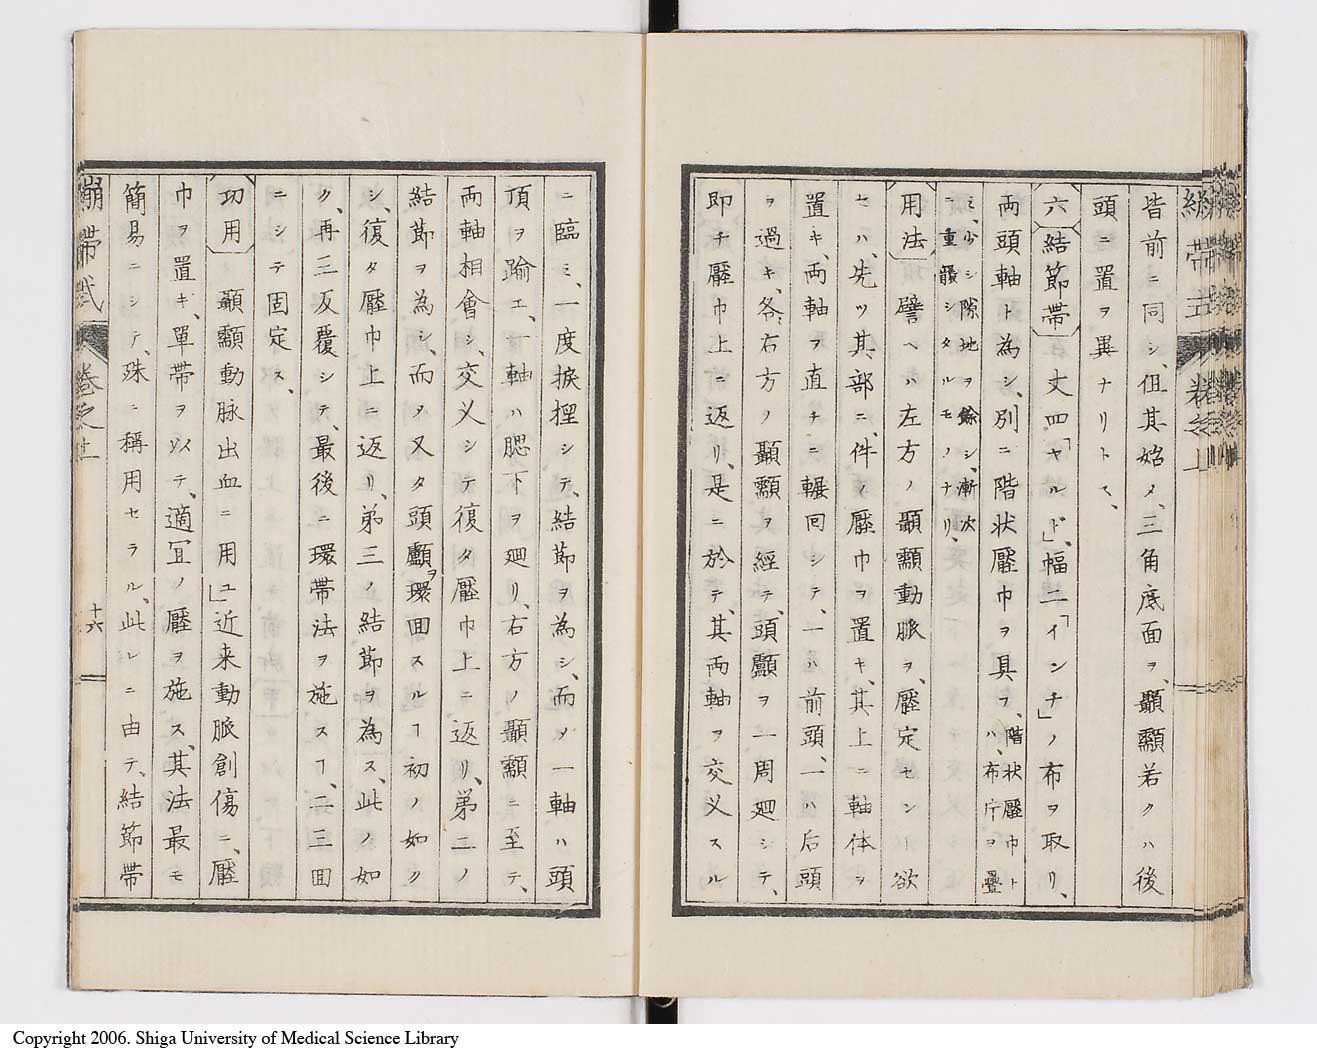 皆前ニ同シ、但其始メ、三角底面ヲ、顳顬若クハ後
頭ニ置ヲ異ナリトス、
六 結節帯 丈四「ヤルド」、幅二「インチ」ノ布ヲ取リ、
両頭軸ト為シ、別ニ階状壓巾ヲ具フ、階状壓巾トハ、布片ヲ疊
ミ、少シ隙地ヲ餘シ、漸次ニ重疊シタルモノナリ、
用法 譬ヘハ左方ノ顳顬動脈ヲ、壓定センヿ欲
セハ、先ツ其部ニ、件ノ壓巾ヲ置キ、其上ニ軸体ヲ
置キ、両軸ヲ直チニ輾回シテ、一ハ前頭、一ハ后頭
ヲ過キ、各右方ノ顳顬ヲ經テ、頭顱ヲ一周廻シテ、
即チ壓巾上ニ返リ、是ニ於テ、其両軸ヲ交叉スル
ニ臨ミ、一度捩捏シテ、結節ヲ為シ、而ソ一軸ハ頭
頂ヲ踰エ、一軸ハ腮下ヲ廻リ、右方ノ顳顬ニ至テ、
両軸相會シ、交叉シテ復タ壓巾上ニ返リ、第二ノ
結節ヲ為シ、而ソ又タ頭顱ヲ環回スルヿ初ノ如ク
シ、復タ壓巾上ニ返リ、第三ノ結節ヲ為ス、此ノ如
ク、再三反覆シテ、最後ニ環帯法ヲ施スヿ、二三回
ニシテ固定ス、
功用 顳顬動脉出血ニ用ユ」近来動脈創傷ニ、壓
巾ヲ置キ、單帯ヲ以テ、適冝ノ壓ヲ施ス、其法最モ
簡易ニシテ、殊ニ稱用セラル、此レニ由テ、結節帯
繃帯式 巻之上
十六
Copyright 2006. Shiga University of Medical Science Library